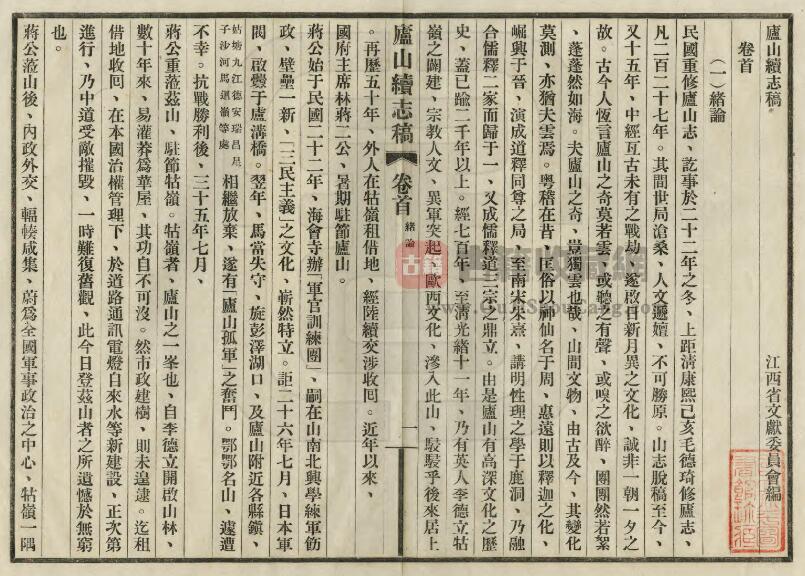 廬山續志稿
江西省文獻委員會編
卷首
(一)緒論
民國重修廬山志、訖事於二十二年之冬、上距淸康熙己亥毛德琦修廬志、
凡二百二十七年。其間世局滄桑、人文遞嬗、不可勝原。山志脫稿至今、
又十五年、中經亙古未有之戰劫、遂啟日新月異之文化、誠非一朝一夕之
故。古今人恆言廬山之奇莫若雲、或聽之有聲、或嗅之欲醉、團團然若絮
、蓬蓬然如海。夫廬山之奇、豈獨雲也哉、山間文物、由古及今、其變化
莫測、亦猶夫雲焉。粤稽在昔、匡俗以神仙名于周、惠遠則以釋迦之化、
崛興于晉、演成道釋同尊之局、至南宋朱熹、講明性理之學于鹿洞、乃融
合儒釋二家而歸于一、又成儒釋道三宗之鼎立。由是廬山有高深文化之歷
史、蓋已踰二千年以上。經七百年、至淸光緒十一年、乃有英人李德立牯
嶺之闢建、宗敎人文、異軍突起、歐西文化、滲入此山、駸駸乎後來居上
廬山續志稿 卷首 緒論 一
。再歷五十年、外人在牯嶺租借地、經陸續交涉收回。近年以來、
國府主席林蔣二公、暑期駐節廬山。
蔣公始于民國二十二年、海會寺辦「軍官訓練團」、嗣在山南北興學練軍飭
政、壁壘一新、「三民主義」之文化、嶄然特立。詎二十六年七月、日本軍
閥、啟釁于廬溝橋。翌年、馬當失守、旋彭澤湖口、及廬山附近各縣鎭、
姑塘九江德安瑞昌星子沙河馬迴嶺等處 相繼放棄、遂有「廬山孤軍」之奮鬥。鄂鄂名山、遽遭
不幸。抗戰勝利後、三十五年七月、
蔣公重蒞茲山、駐節牯嶺。牯嶺者、廬山之一峯也、自李德立開啟山林、
數十年來、易灌莽爲華屋、其功自不可沒。然市政建樹、則未遑逮。迄租
借地收回、在本國治權管理下、於道路通訊電燈自來水等新建設、正次第
進行、乃中道受敵摧毀、一時難復舊觀、此今日登茲山者之所遺憾於無窮
也。
蔣公蒞山後、內政外交、輻輳咸集、蔚爲全國軍事政治之中心、牯嶺一隅